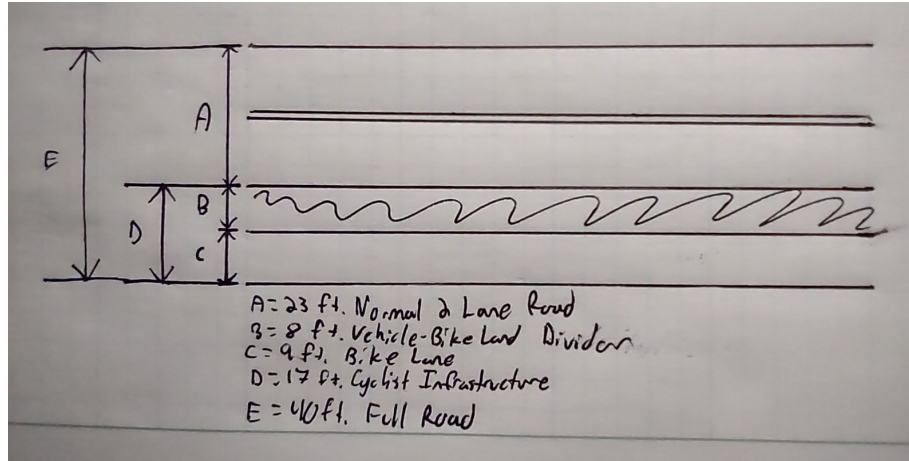 A
E
B
D
C
A=23 ft. Normal 2 Lane Road
B=8 ft. Vehicle-Bike Land Divider
C=9 ft. Bike Lane
D=17 ft. Cyclist Infrastructure
E=40ft. Full Road